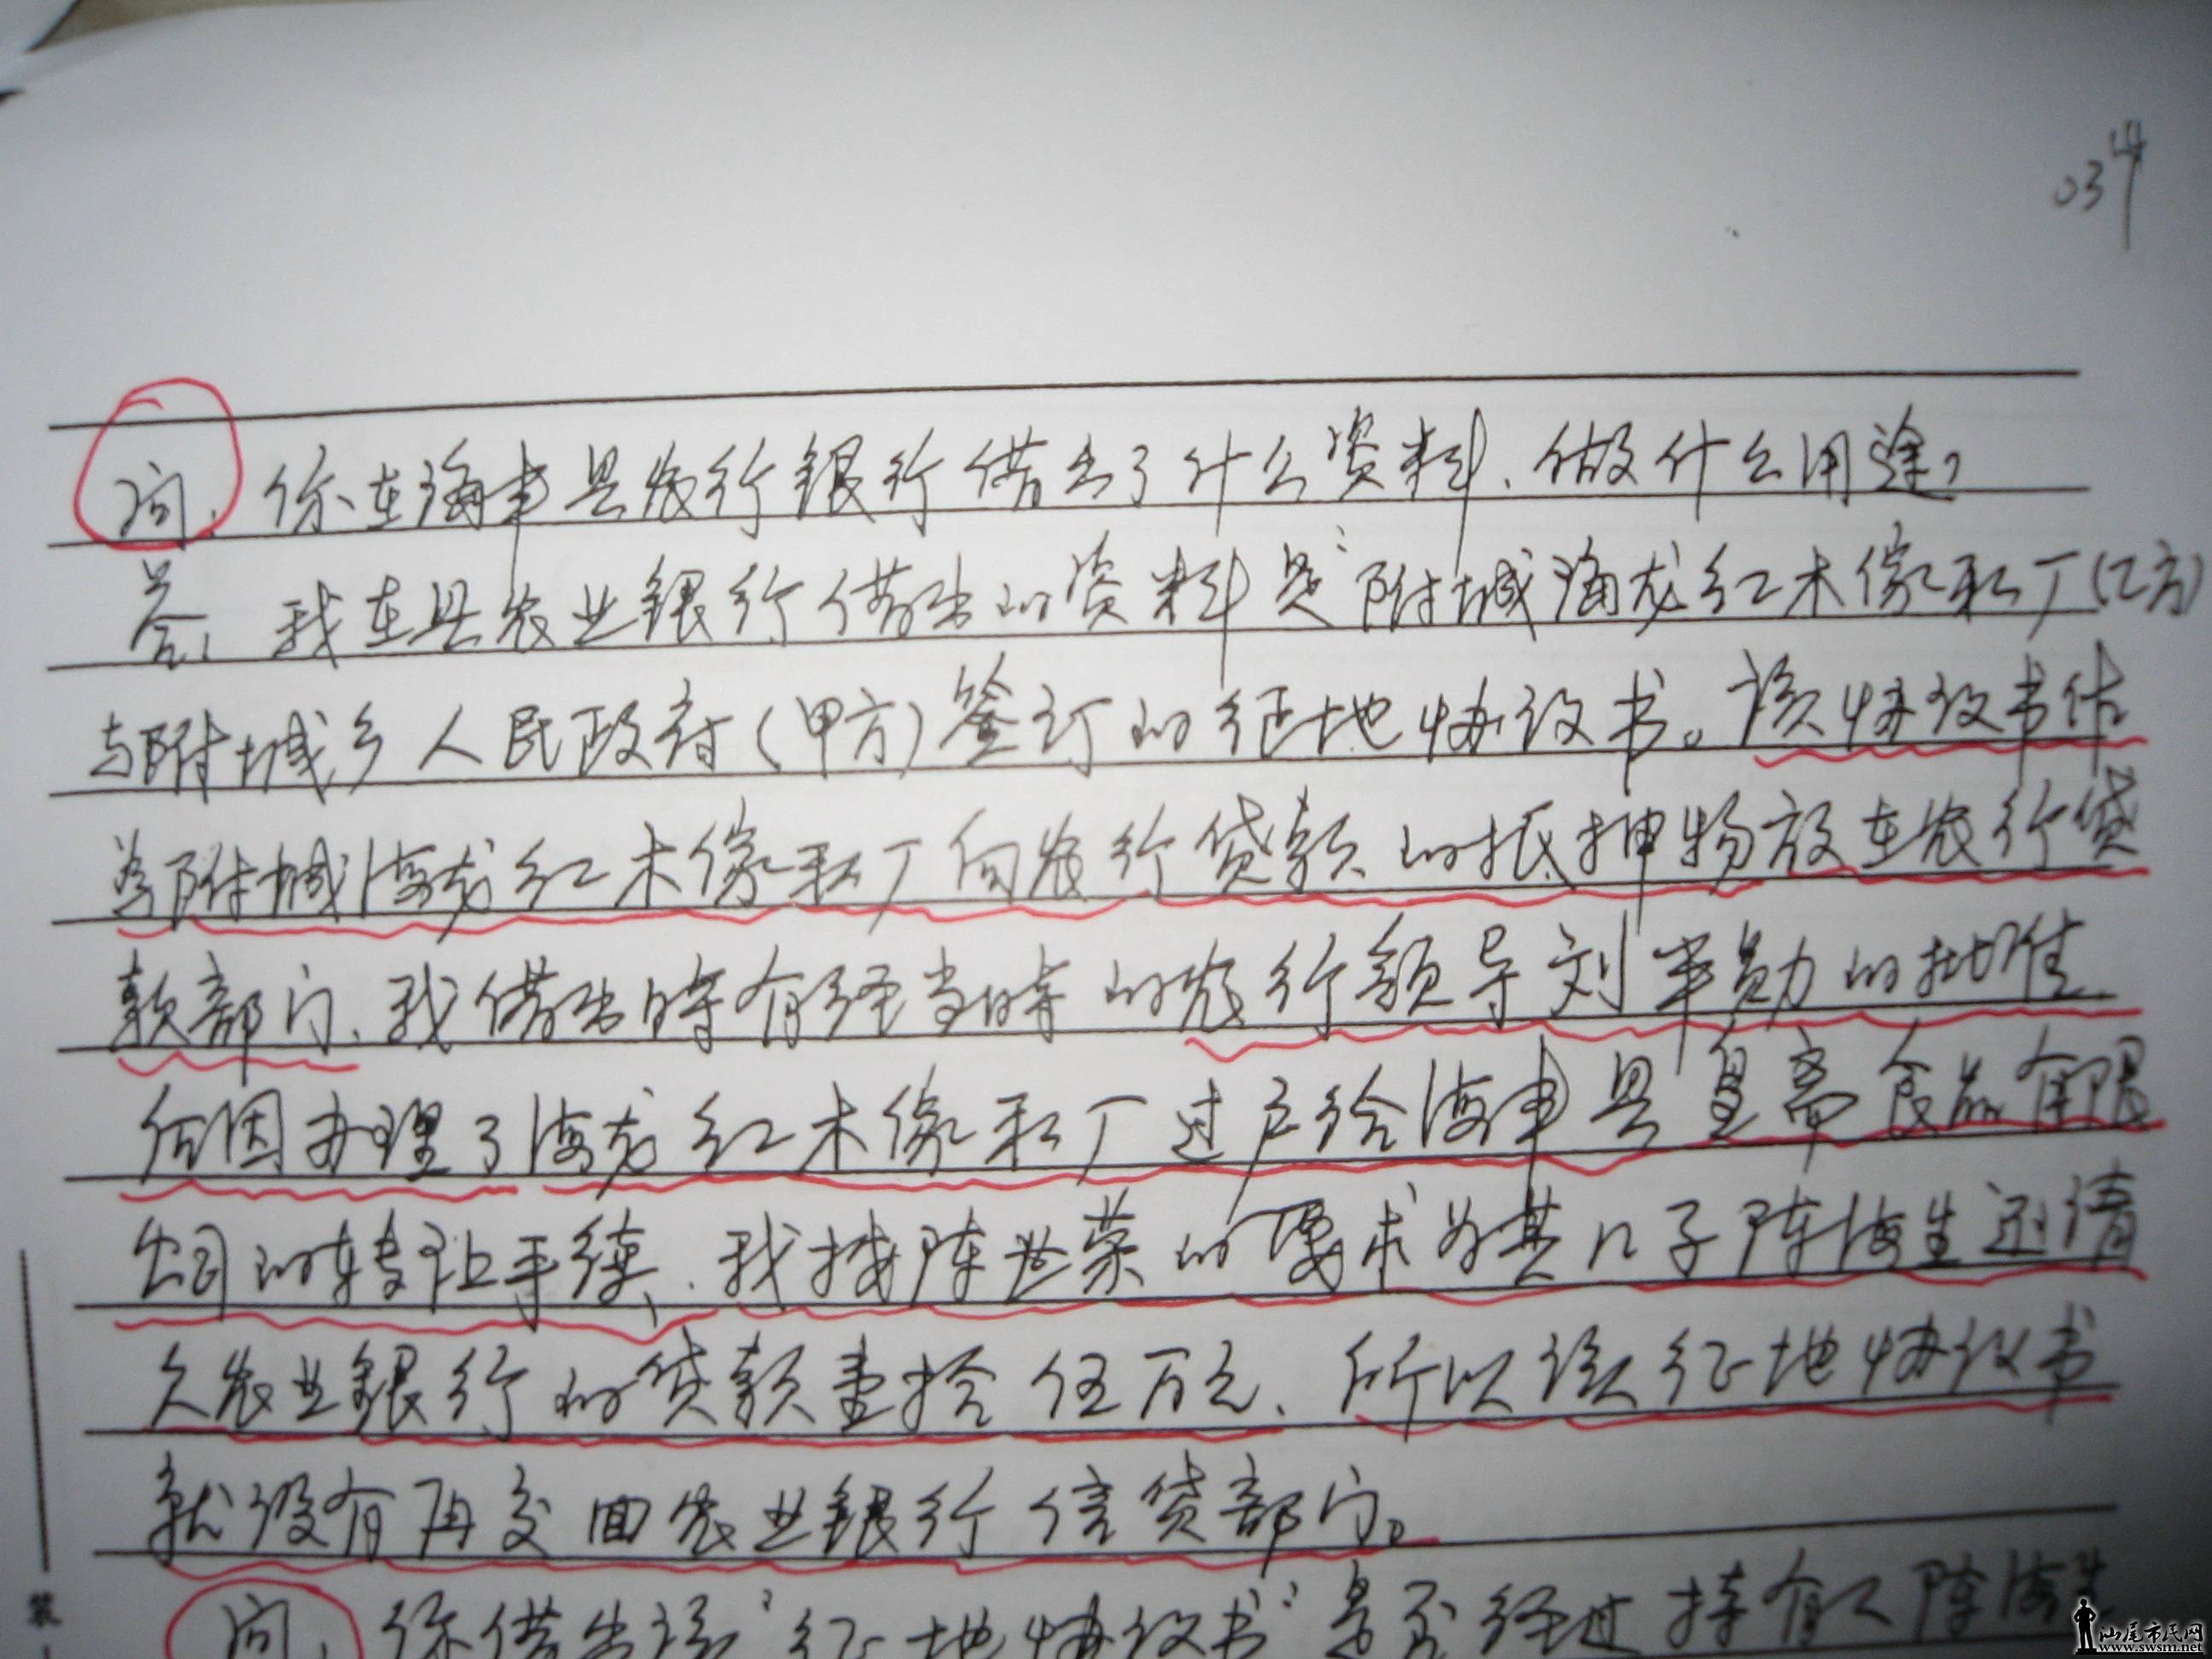 034
问：你在海丰县农行银行借出了什么资料，做什么用途？
答：我在县农业银行借出的资料是“附城海龙红木傢私厂(乙方)
与附城乡人民政府(甲方)签订的征地协议书。该协议书估
为附城海龙红木傢私厂向农行贷款的抵押物放在农行贷
款部门，我借出时有经当时的农行领导刘半勋的批准，
后因办理了海龙红木傢私厂过户给海丰县皇帝食品有限
公司的转让手续，我按陈世荣的要求为其儿子陈海生还清
欠农业银行的贷款壹拾伍万元，所以该征地协议书
就没有再交回农业银行信贷部门。
问：你借出该“征地协议书”是否经过持有人陈海生
装
汕尾市民网
www.swsm.net